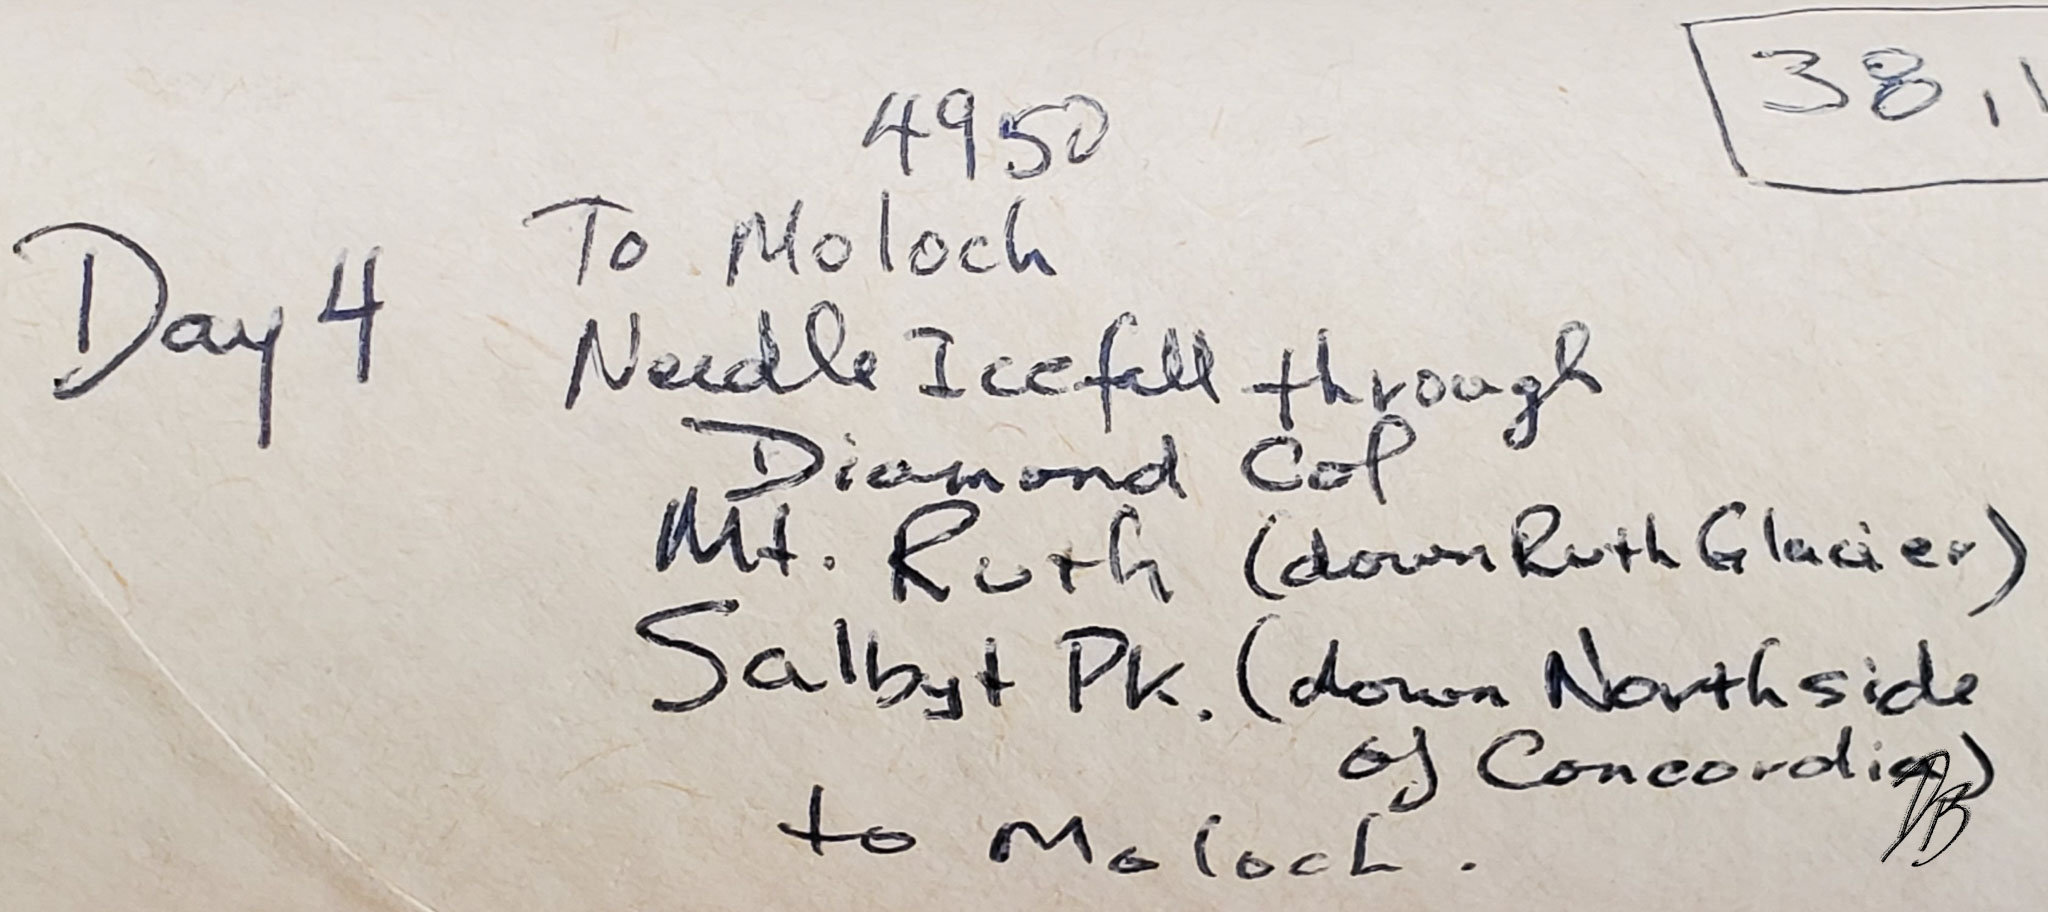 38,1
4950
To Moloch
Day 4
Needle Icefall through
Diamond Col
Mt. Ruth (down Ruth Glacier)
Salbyt Pk. (down North side
of Concordia)
to Moloch.
DB